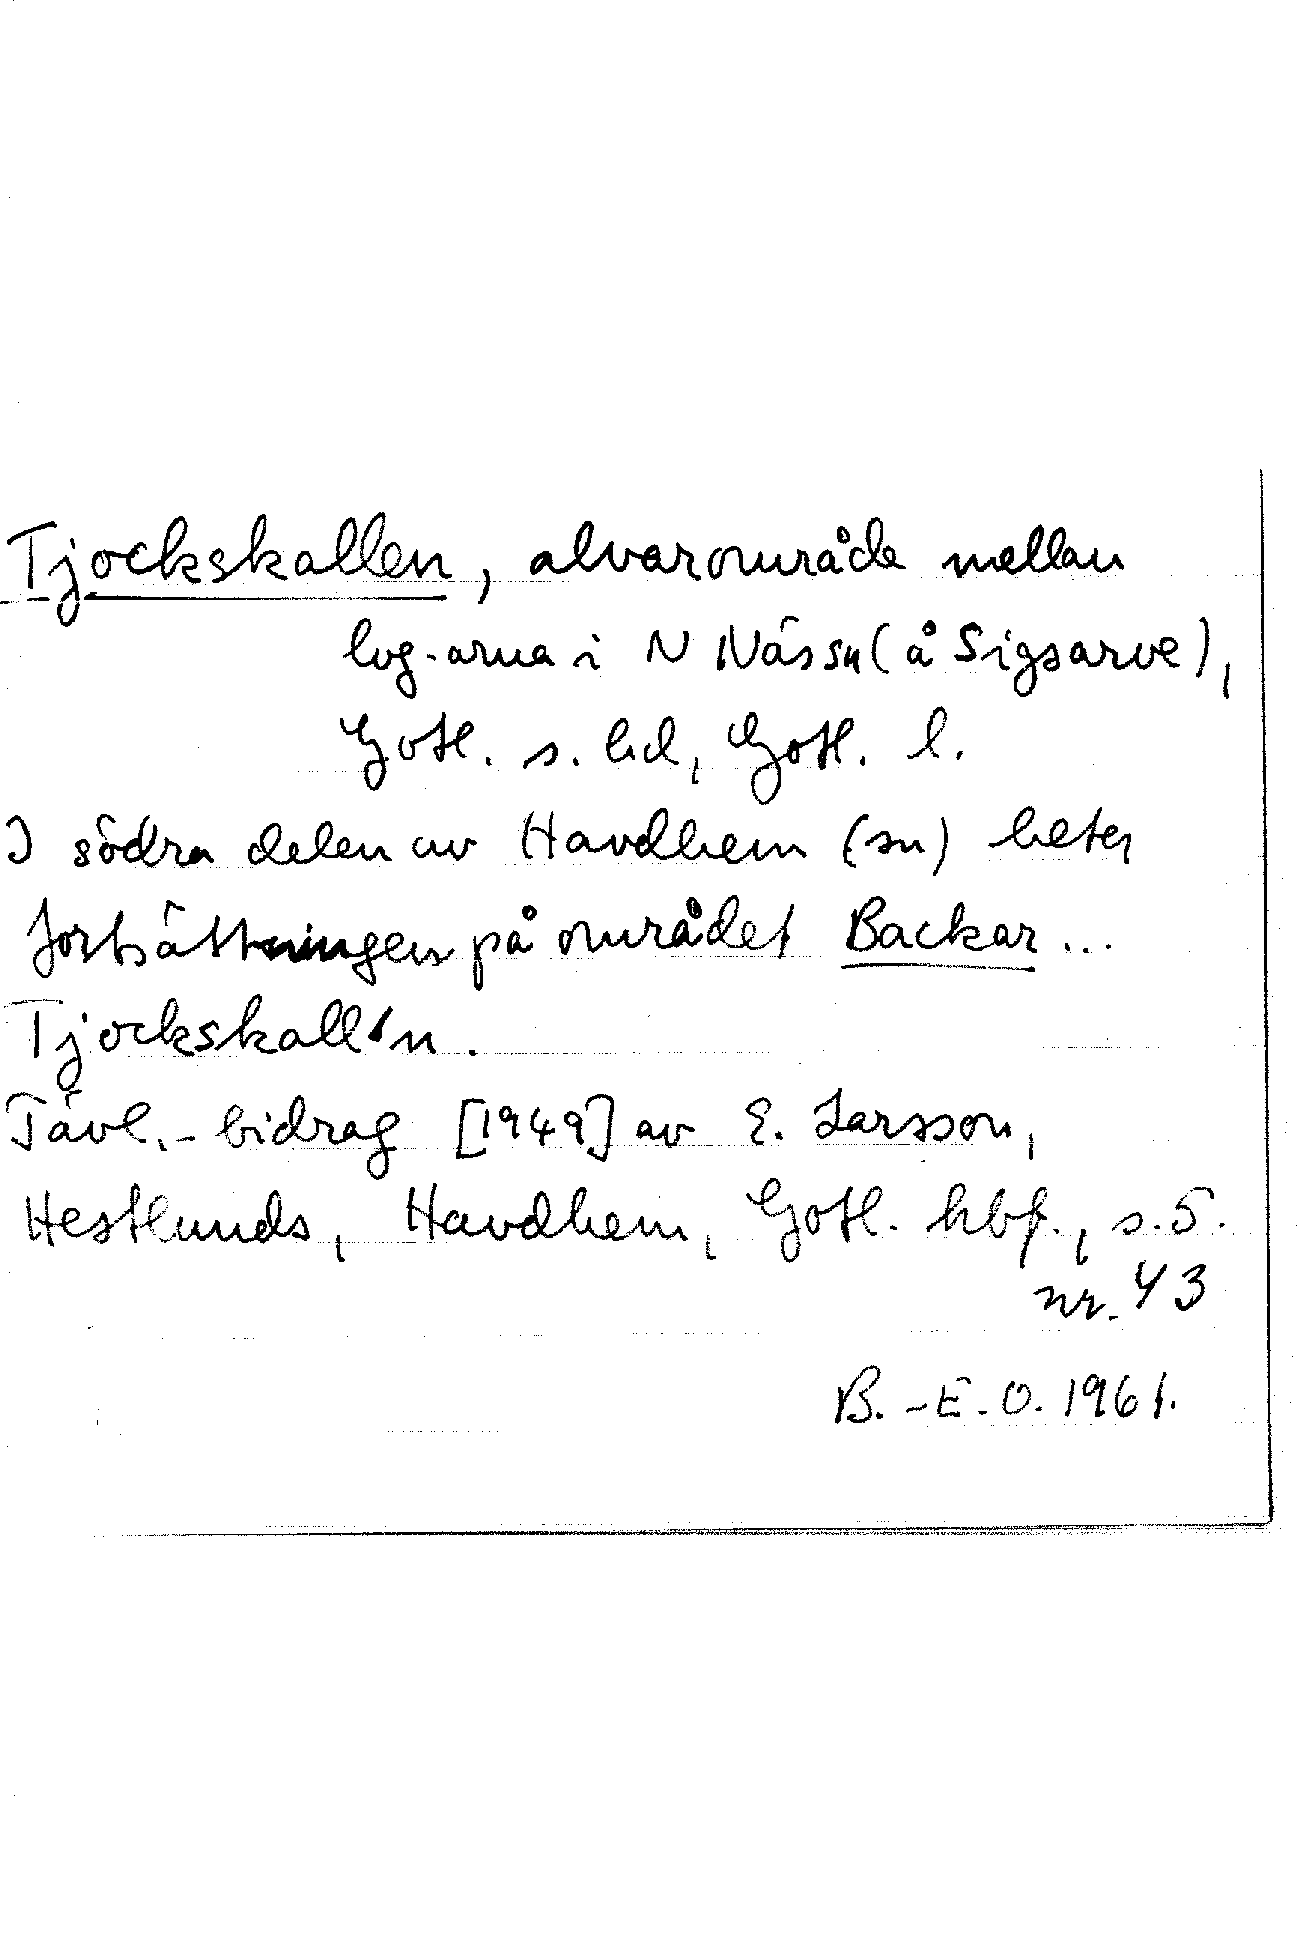 Tjockskallen, alvarområde mellan
bvg-arna i N Näs sn (å Sigsarve),
Gotl. s. hd, Gotl. l.
I södra delen av Havdhem (sn) heter
fortsättningen på området Backar...
Tjockskall'n.
Tävl.-bidrag [1949] av E. Larsson,
Hestlunds, Havdhem, Gotl. hbf., s.5.
nr. 43
B.-E.O. 1961.